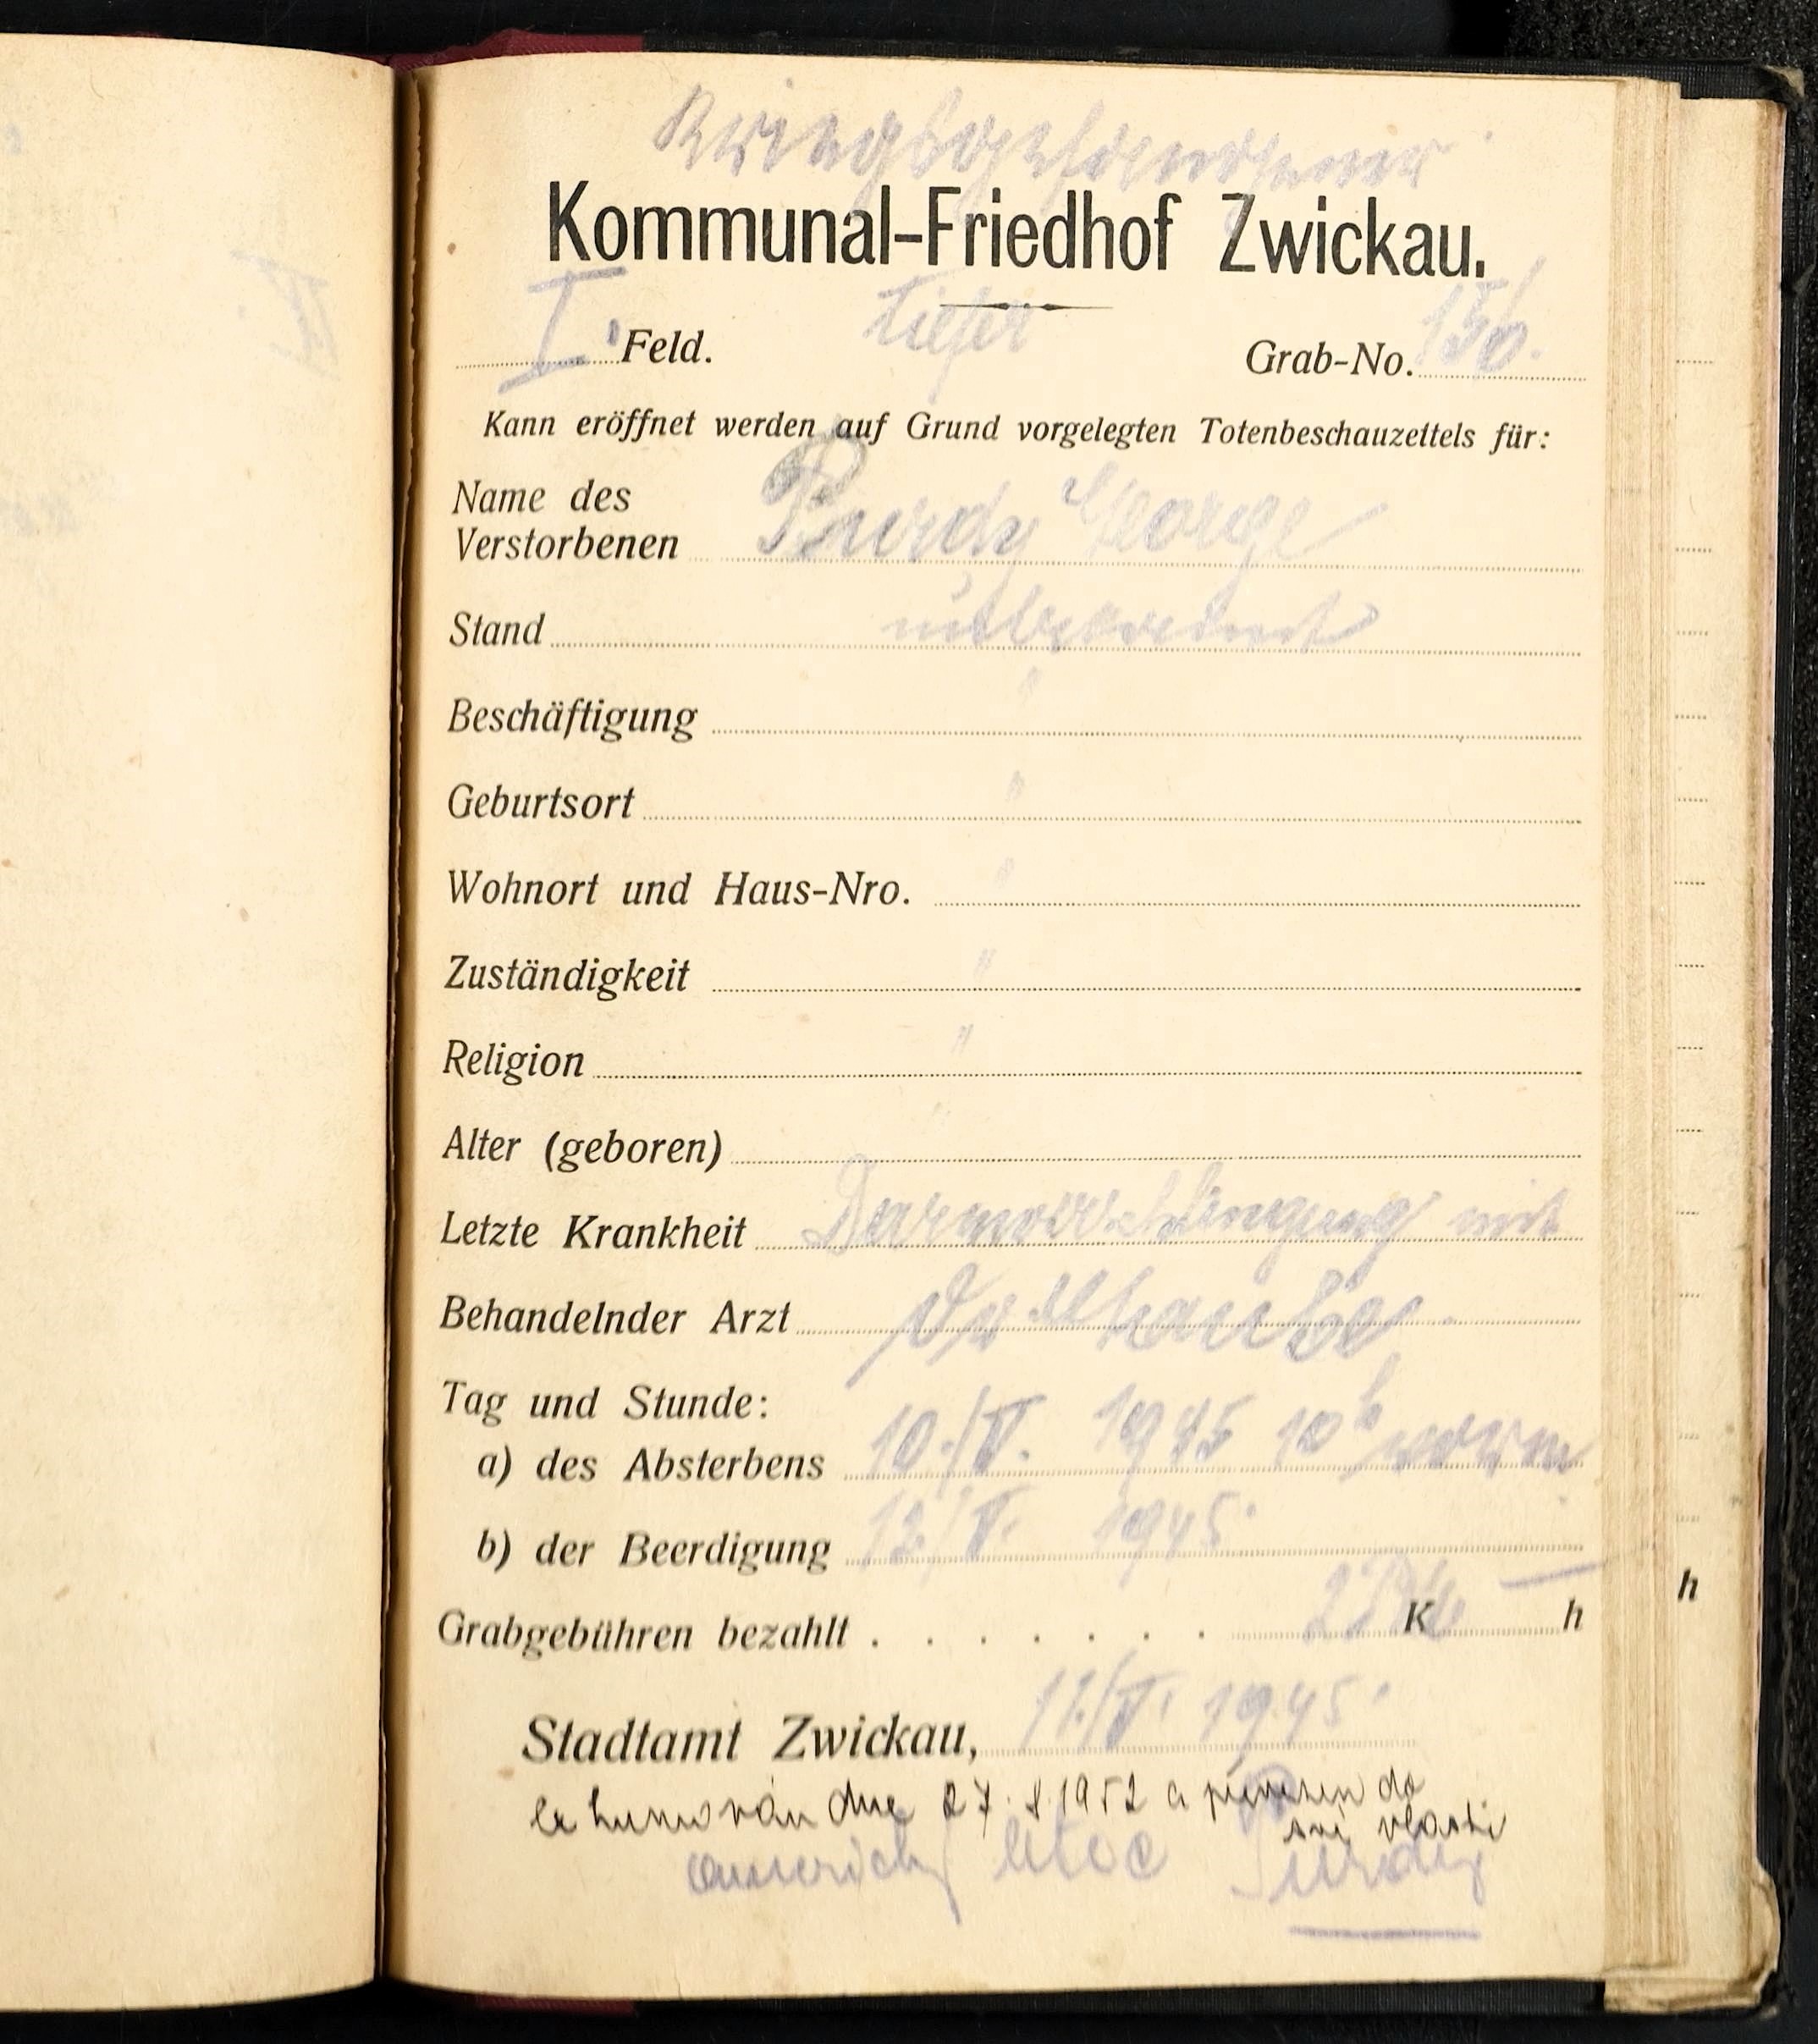 Kriegsgefangener
Kommunal-Friedhof Zwickau.
I. Feld. tiefer Grab-No. 150.
Kann eröffnet werden auf Grund vorgelegten Totenbeschauzettels für:
Name des
Verstorbenen George
Stand unbekannt
Beschäftigung "
Geburtsort "
Wohnort und Haus-Nro. "
Zuständigkeit "
Religion "
Alter (geboren) "
Letzte Krankheit Darmverschlingung mit
Behandelnder Arzt Dr
Tag und Stunde:
a) des Absterbens 10./V. 1945 10h vorm
b) der Beerdigung 12/V. 1945.
Grabgebühren bezahlt . . . . . . . K h
Stadtamt Zwickau, 11./V. 1945.
dne 27. 8. 1952 a do
své vlasti
Purdy
h